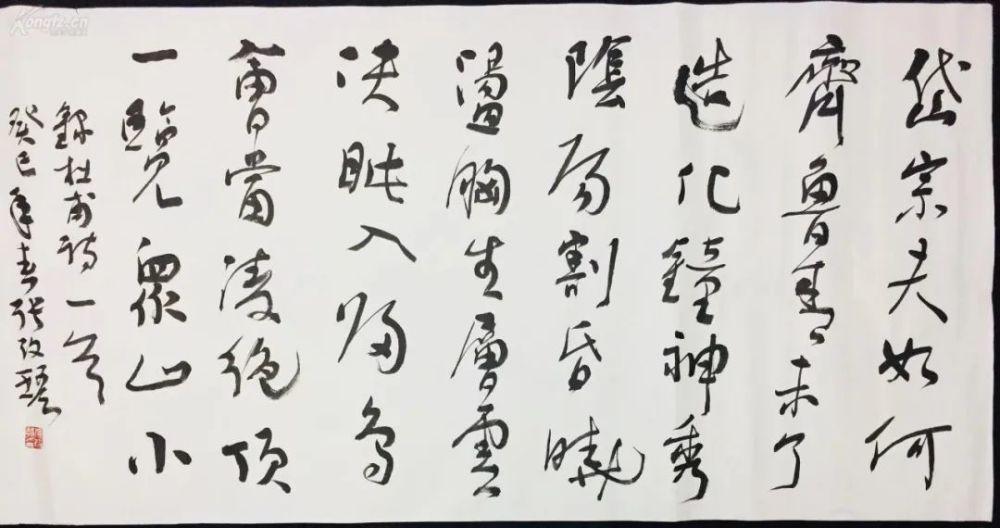 岱宗夫如何
齊魯青未了
造化鐘神秀
陰陽割昏曉
盪胸生層雲
決眦入歸鳥
會當凌絕頂
一覽眾山小
錄杜甫詩一首
癸巳年春張改琴
Kongfz.cn